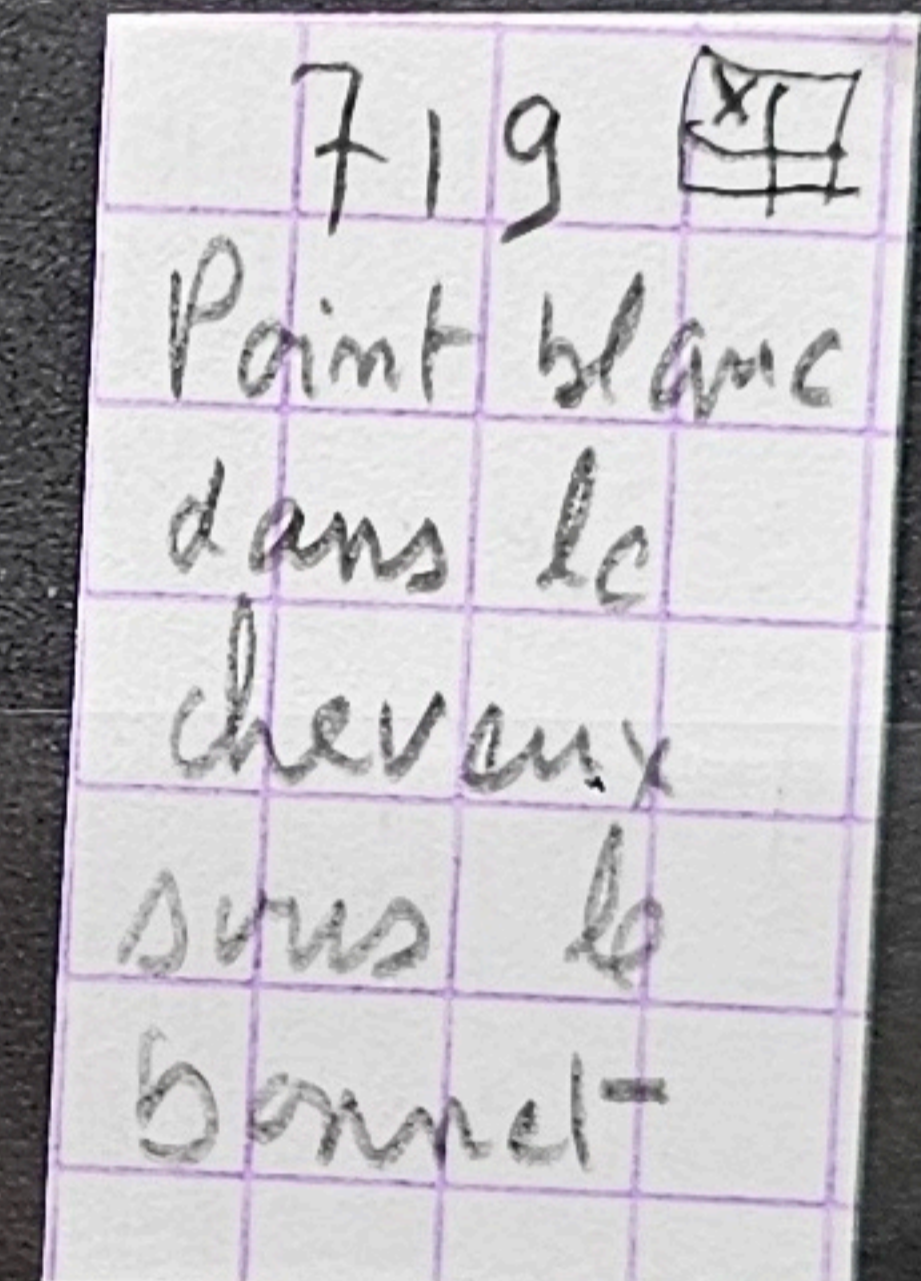 719
Point blanc
dans le
cheveux
sous le
bonnet